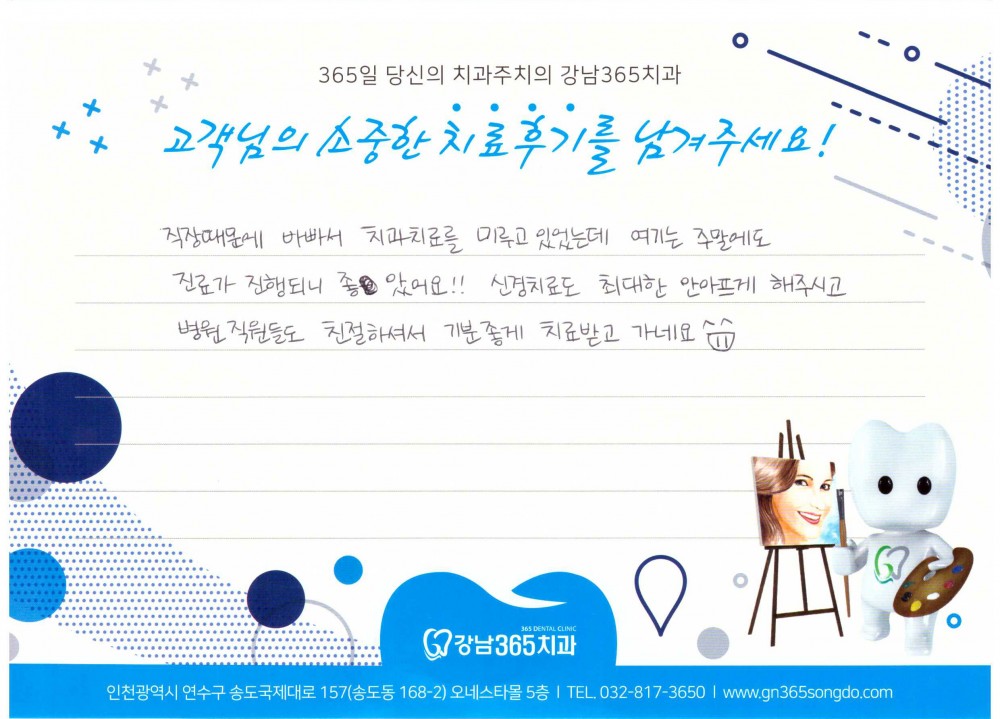 365일 당신의 치과주치의 강남365치과
고객님의 소중한 치료후기를 남겨주세요!
직장때문에 바빠서 치과치료를 미루고 있었는데 여기는 주말에도
진료가 진행되니 좋았어요!! 신경치료도 최대한 안아프게 해주시고
병원 직원들도 친절하셔서 기분좋게 치료받고 가네요
365 DENTAL CLINIC
강남365치과
인천광역시 연수구 송도국제대로 157(송도동 168-2) 오네스타몰 5층 | TEL. 032-817-3650 | www.gn365songdo.com